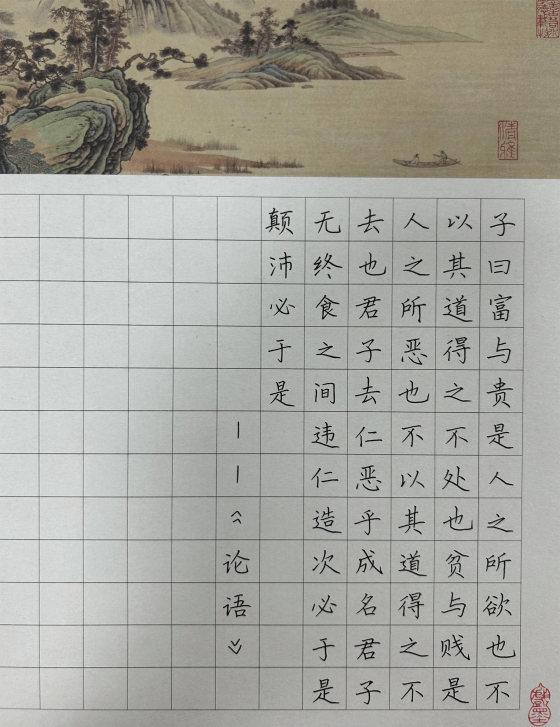 子曰富与贵是人之所欲也不
以其道得之不处也贫与贱是
人之所恶也不以其道得之不
去也君子去仁恶乎成名君子
无终食之间违仁造次必于是
颠沛必于是
——《论语》